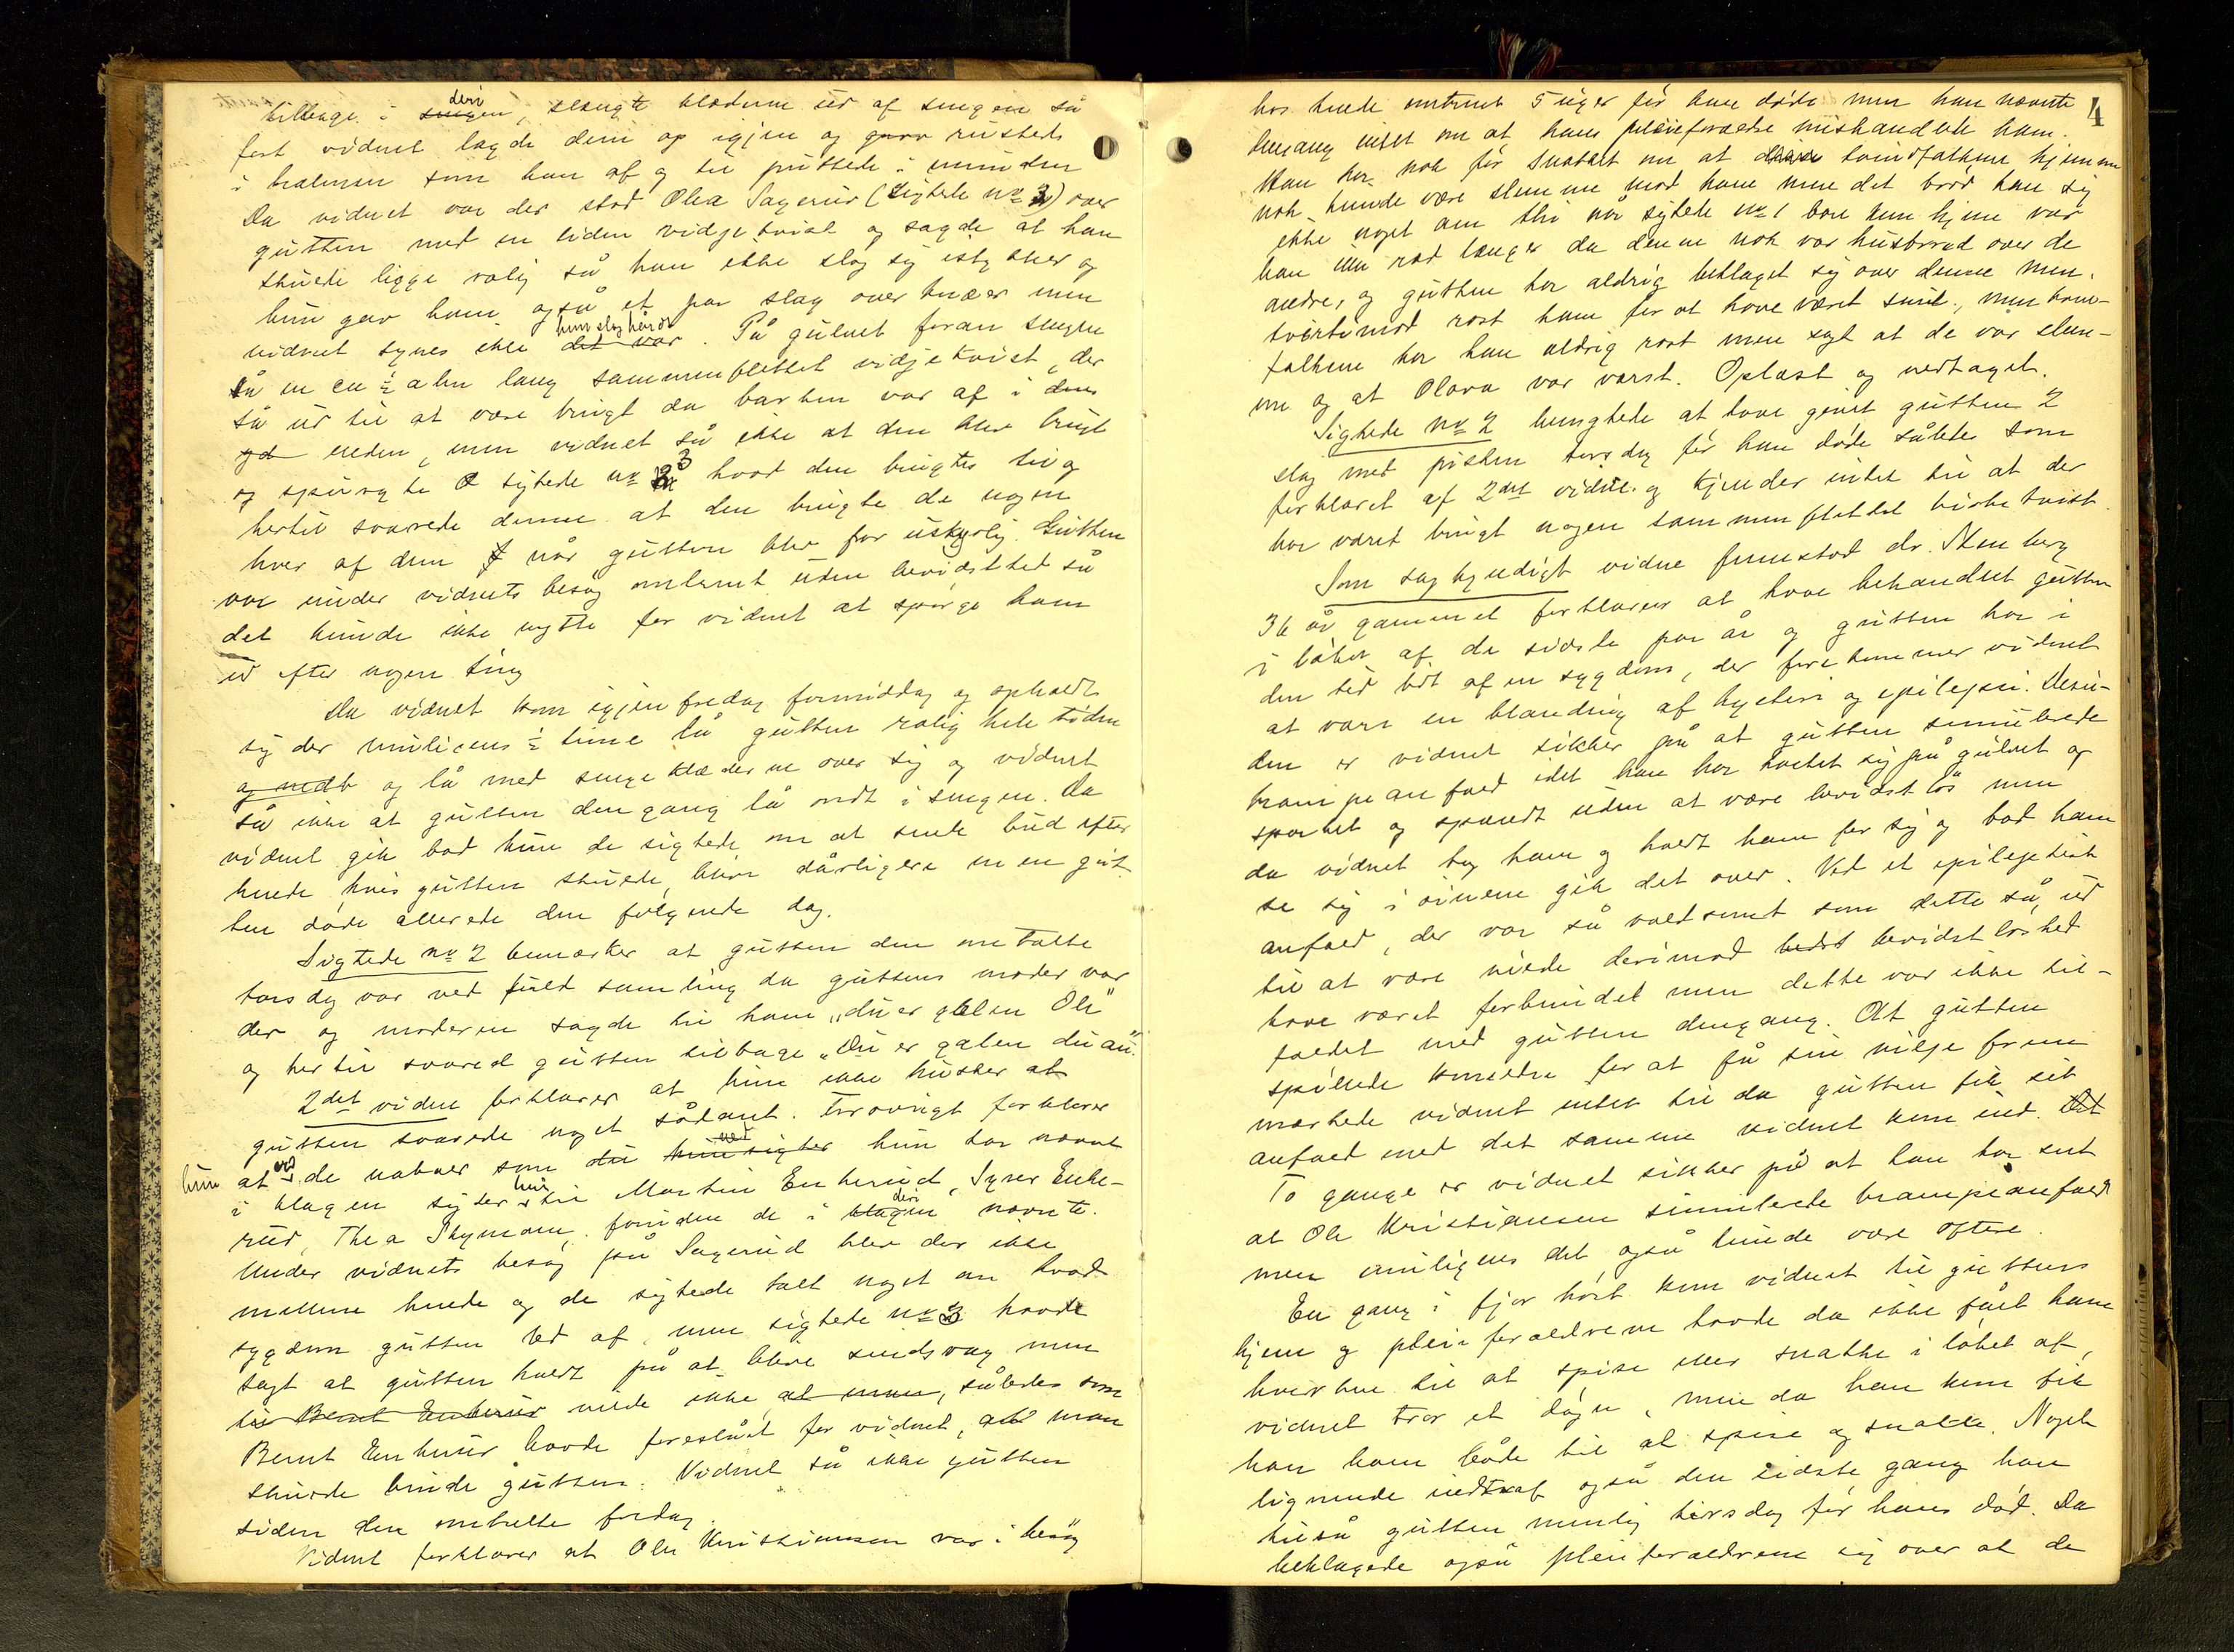 tilbage i sengen deri, slængte klæderne ud af sengen så
fort vidnet lagde dem op igjen og rustede
i halmen som han af og til puttede i munden
Da vidnet var der stod Olea Sagerud (Sigtede No 3) over
gutten med en liden vidjekvist og sagde at han
skulde ligge rolig så han ikke slog sig istykker og
hun gav ham også et par slag over knæer men
vidnet synes ikke det var hun slog hårdt. På gulvet foran sengen
lå en ca ½ alen lang sammenflettet vidjekvist, der
så ud til at være brugt da barken var af i den
yd enden, men vidnet så ikke at den blev brugt
og spurgte sigtede No 3 hvad den brugtes til og
hertil svarede denne at den brugte de nogen
hver af dem når gutten blev for ustyrlig. Gutten
var under vidnets besøg omtrent uden bevidsthed så
det kunde ikke nytte for vidnet at spørge ham
ud efter nogen ting
Da vidnet kom igjen fredag formiddag og opholdt
sig der muligens ½ time lå gutten rolig hele tiden
og nedb og lå med sengeklæderne over sig og vidnet
så ikke at gutten dengang lå ondt i sengen. Da
vidnet gik bad hun de sigtede om at sende bud efter
hende, hvis gutten skulde blive dårligere men gut-
ten døde allerede den følgende dag.
Sigtede No 2 bemærker at gutten den omtalte
torsdag var ved fuld samling da guttens moder var
der og moderen sagde til ham „du er galen Ole"
og hertil svared gutten tilbage „Du er galen du åu".
2det vidne forklarer at hun ikke husker at
gutten svarede noget sådant. Forøvrigt forklarer
hun at ved de naboer som du hun sigter ved hun har nævnt
i klagen sigter hun til Martin Enkerud, Syver Enke-
rud, Thea Skymoen, foruden de i klagen deri nævnte.
Under vidnets besøg på Sagerud blev der ikke
mellem hende og de sigtede talt noget om hvad
sygdom gutten led af, men sigtede No 3 havde
sagt at gutten holdt på at blive sindsvag men
til Bernt Enkerud vilde ikke, at man, således som
Bernt Enkerud havde foreslået for vidnet, at man
skulde binde gutten. Vidnet så ikke gutten
siden den omtalte fredag.
Vidnet forklarer at Ole Kristiansen var i besøg
4
hos hende omtrent 5 uger før han døde men han nævnte
dengang intet om at hans pleieforældre mishandlede ham.
Han har nok før snakket om at disse kvindfolkene hjemme
nok kunde være slemme mod ham men det brød han sig
ikke noget om thi når sigtede No 1 bare kom hjem var
han illi ræd længer da denne nok var husbond over de
andre, og gutten har aldrig beklaget sig over denne men
tvertimod rost ham for at have været snil, men kvind-
folkene har han aldrig rost men sagt at de var slem-
me og at Olava var værst. Oplæst og vedtaget.
Sigtede No 2 benægtede at have givet gutten 2
slag med pisken torsdag før han døde således som
forklaret af 2det vidne og kjender intet til at der
har været brugt nogen sammenflettet birkekvist.
Som sagkyndigt vidne fremstod dr. Stenberg
36 år gammel forklarer at have behandlet gutten
i løbet af de sidste par år og gutten har i
den tid lidt af en sygdom, der forekommer vidnet
at være en blanding af hysteri og epilepsi. Desu-
den er vidnet sikker på at gutten simulerede
krampeanfald idet han har kastet sig på gulvet og
sparket og spændt uden at være bevidstløs men
da vidnet tog ham og holdt ham for sig og bad ham
se sig i øinene gik det over. Ved et epileptisk
anfald, der var så voldsomt som dette så ud
til at være vilde derimod bedst bevidstløshed
have været forbundet men dette var ikke til-
fældet med gutten dengang. At gutten
spillede komedie for at få sin vilje frem
mærkede vidnet intet til da gutten fik sit
anfald med det samme vidnet kom ind. Det
To gange er vidnet sikker på at han har set
at Ole Kristiansen simulerede krampeanfald
men muligens det også kunde være oftere.
En gang i fjor høst kom vidnet til guttens
hjem og pleieforældrene havde da ikke fået ham
hverken til at spise eller snakke i løbet af,
vidnet tror et døgn, men da han kom fik
han ham både til at spise og snakke. Noget
lignende indtraf også den sidste gang han
tilså gutten nemlig tirsdag før hans død. Da
beklagede også pleieforældrene sig over at de